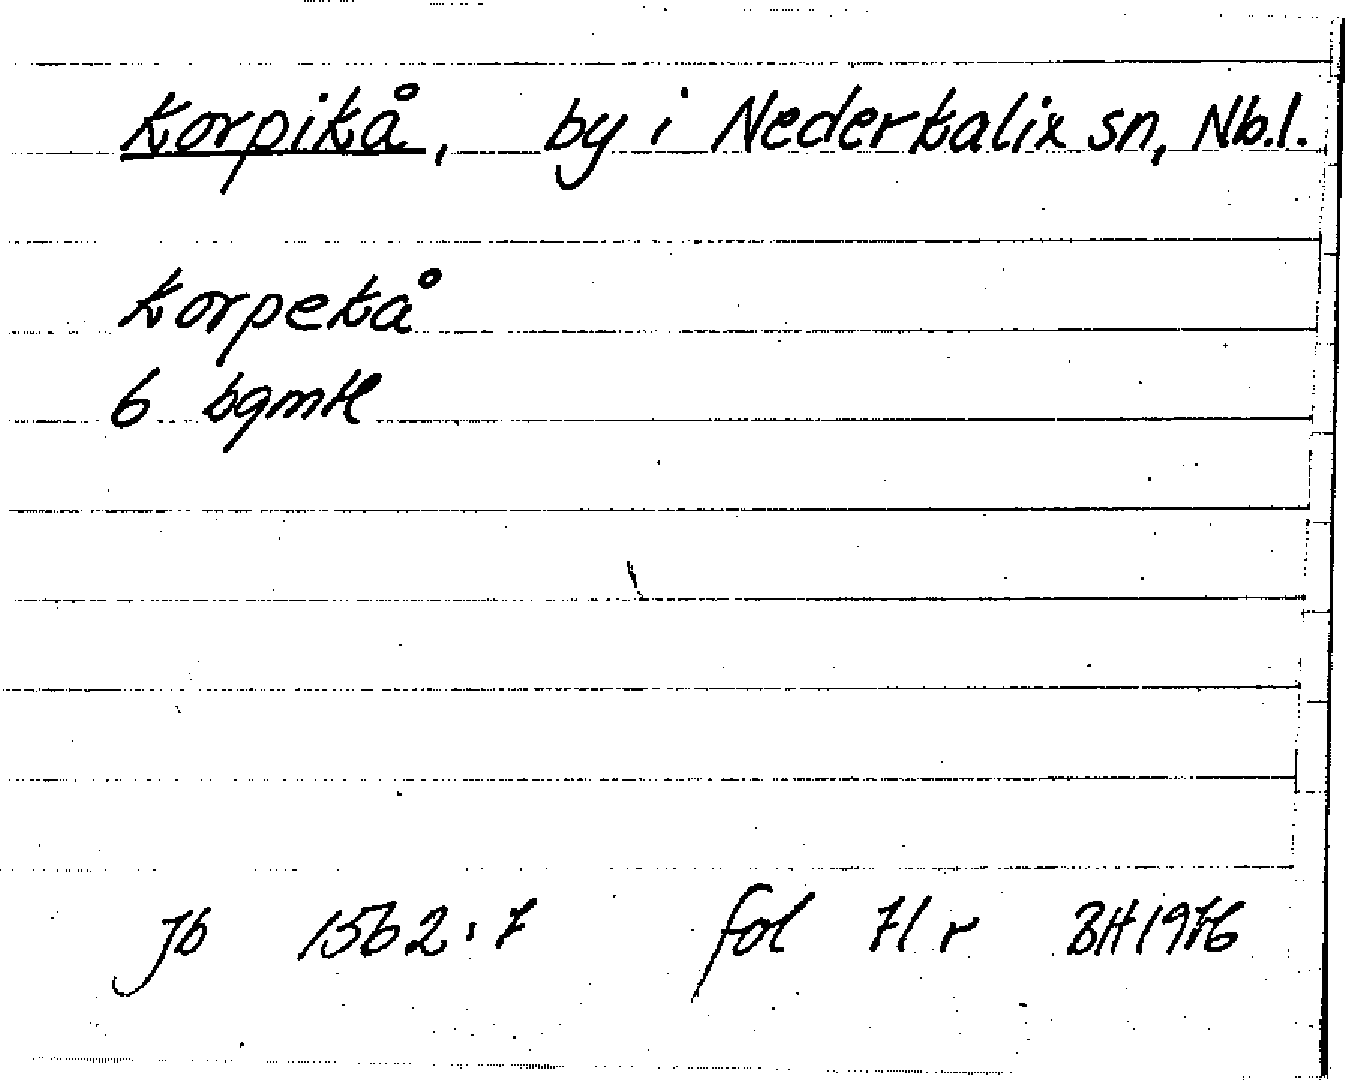 Korpikå, by i Nederkalix sn, Nb.l.
Korpekå
6 bgmtl
Jb 1562:7 fol 71 r BH 1976